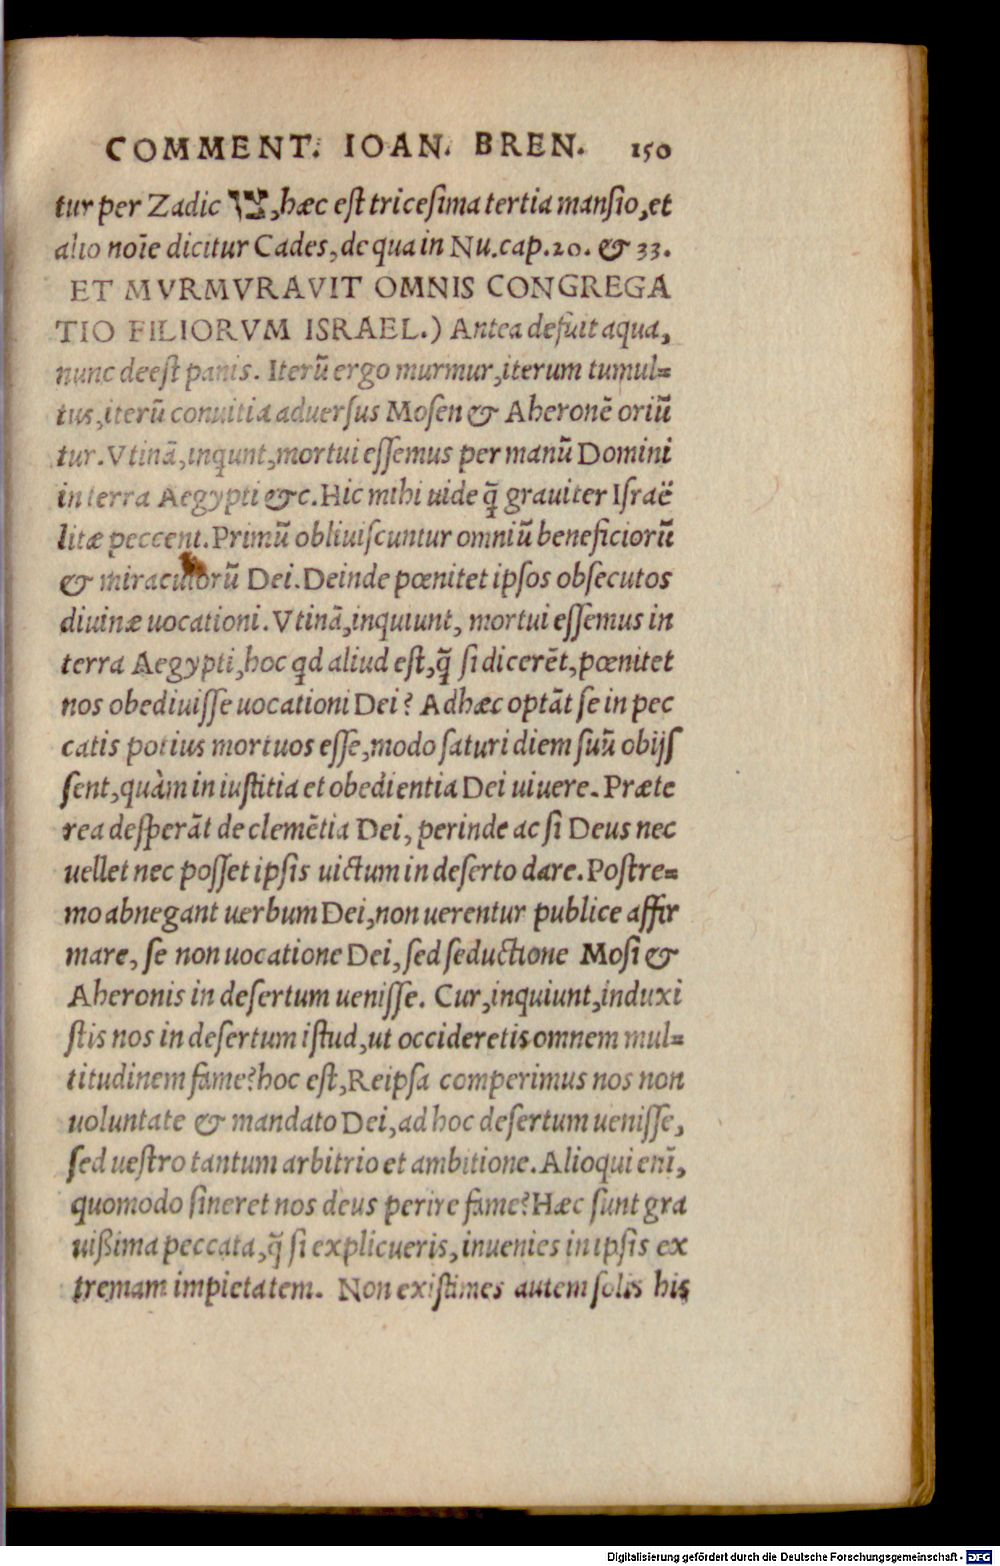 COMMENT. IOAN. BREN. 150
tur per Zadic צן, hæc est tricesima tertia mansio, et
alio noīe dicitur Cades, de qua in Nu. cap. 20. & 33.
ET MVRMVRAVIT OMNIS CONGREGA
TIO FILIORVM ISRAEL.) Antea defuit aqua,
nunc deest panis. Iterū ergo murmur, iterum tumul=
tus, iterū conuitia aduersus Mosen & Aheronē oriū
tur. Vtinā, inqunt, mortui essemus per manū Domini
in terra Aegypti &c. Hic mihi uide q̃ grauiter Israë
litæ peccent. Primū obliuiscuntur omniū beneficiorū
& miraculorū Dei. Deinde pœnitet ipsos obsecutos
diuinæ uocationi. Vtinā, inquiunt, mortui essemus in
terra Aegypti, hoc qd aliud est, q̃ si dicerēt, pœnitet
nos obediuisse uocationi Dei? Adhæc optāt se in pec
catis potius mortuos esse, modo saturi diem suū obijs
sent, quàm in iustitia et obedientia Dei uiuere. Præte
rea desperāt de clemētia Dei, perinde ac si Deus nec
uellet nec posset ipsis uictum in deserto dare. Postre=
mo abnegant uerbum Dei, non uerentur publice affir
mare, se non uocatione Dei, sed seductione Mosi &
Aheronis in desertum uenisse. Cur, inquiunt, induxi
stis nos in desertum istud, ut occideretis omnem mul=
titudinem fame? hoc est, Reipsa comperimus nos non
uoluntate & mandato Dei, ad hoc desertum uenisse,
sed uestro tantum arbitrio et ambitione. Alioqui enī,
quomodo sineret nos deus perire fame? Hæc sunt gra
uißima peccata, q̃ si explicueris, inuenies in ipsis ex
tremam impietatem. Non existimes autem solis his
Digitalisierung gefördert durch die Deutsche Forschungsgemeinschaft - DFG